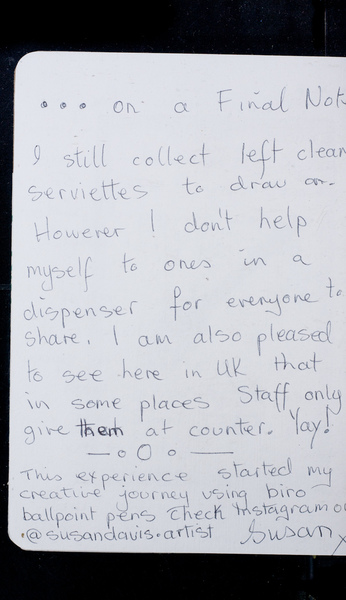 ... on a Final Not
I still collect left clean
serviettes to draw on.
However I don't help
myself to ones in a
dispenser for everyone to
share. I am also pleased
to see here in UK that
in some places Staff only
give them at counter. Yay!
—o O o —
This experience started my
creative journey using biro
ballpoint pens check Instagram o
.@susandavis.artist Susan x